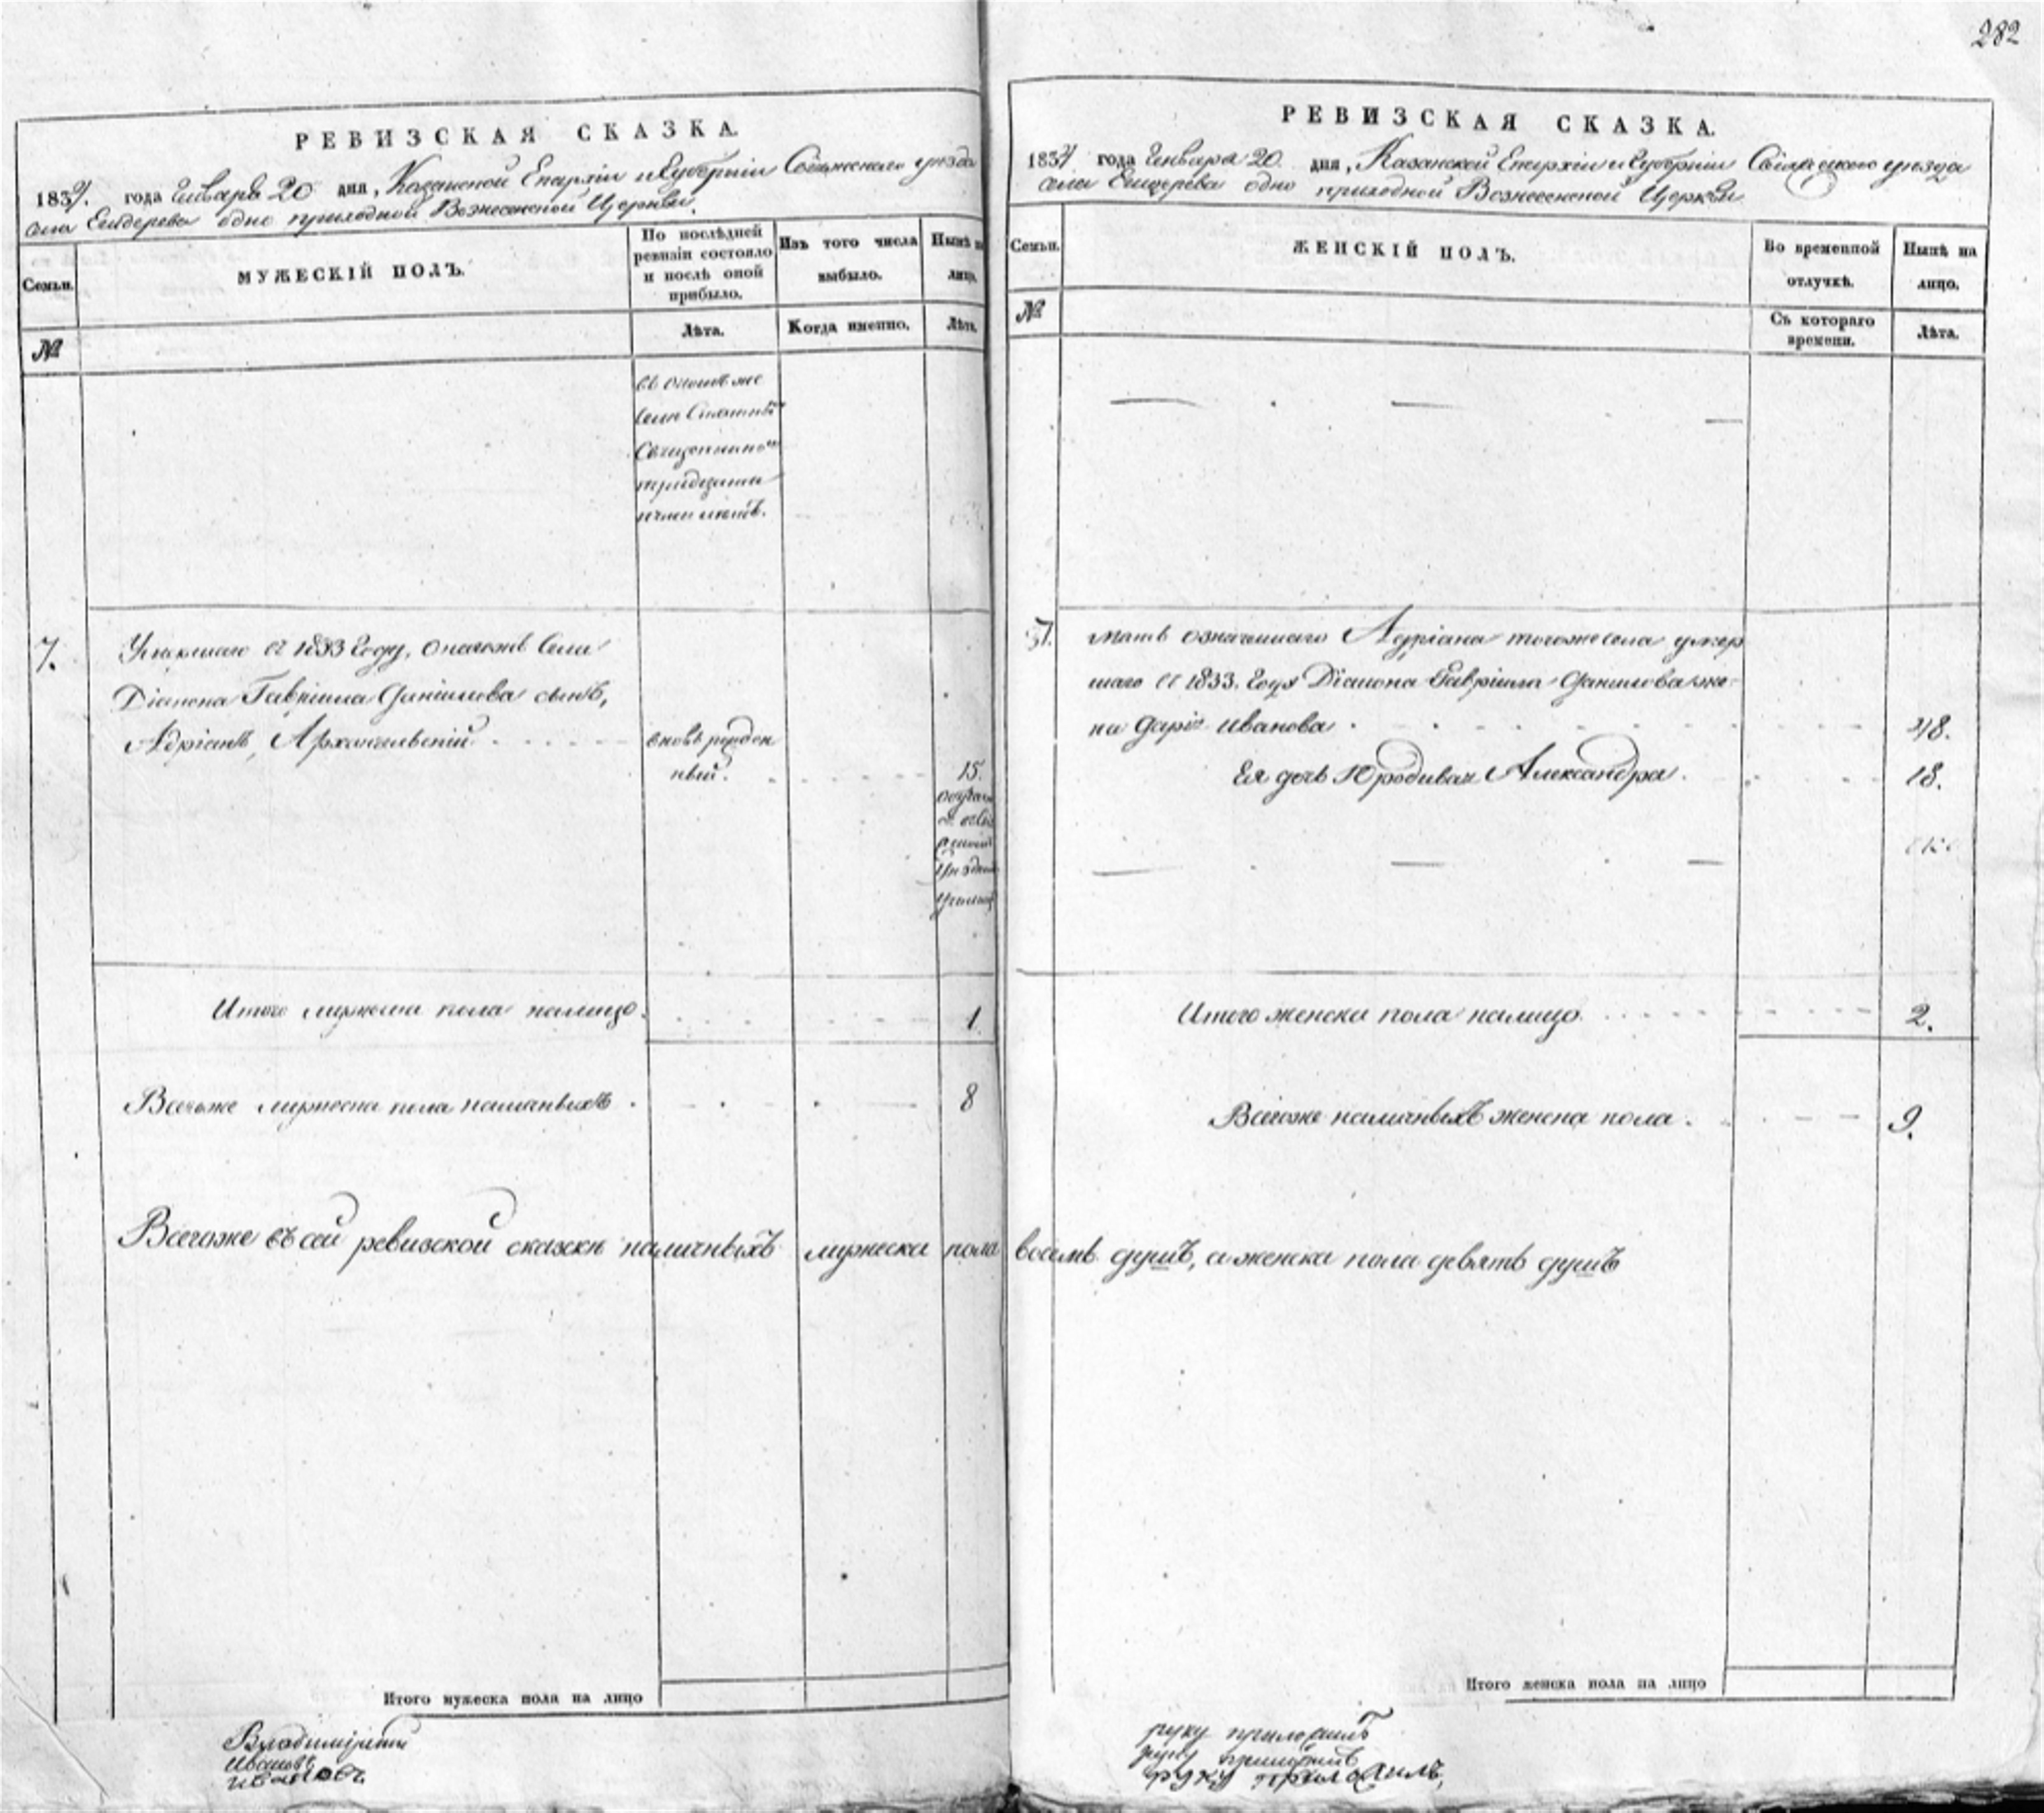 282
РЕВИЗСКАЯ СКАЗКА.
1834. года Января 20 дня, Казанской Епархіи и Губерніи Свіяжскаго уезда
села Ендерева одно приходной Вознесенской Церкви.
Семьи.
МУЖЕСКІЙ ПОЛЪ.
По послѣдней ревизіи состояло и послѣ оной прибыло.
Изъ того числа выбыло.
Нынѣ на лицо.
№
Лѣта.
Когда именно.
Лѣта.
селе
Священника
тридцати
7.
Умершаго въ 1833 Году, означен Села
Діакона Гавріила Данилова сынъ,
Адріанъ, Архангельскій
вновь рожден
ный.
15.
Итого мужеска пола налицо.
1.
Всегоже мужеска пола наличныхъ.
8
Всегоже въ сей ревизской сказки наличныхъ мужеска пола восемь душъ, а женска пола девять душъ
Итого мужеска пола на лицо
Владиміръ
Ивановъ
Ивановъ
РЕВИЗСКАЯ СКАЗКА.
1834 года Января 20 дня, Казанской Епархіи и Губерніи Свіяжскаго уезда
села Ендерева одно приходной Вознесенской Церкви
Семьи.
ЖЕНСКІЙ ПОЛЪ.
Во временной отлучкѣ.
Нынѣ на лицо.
№
Съ котораго времени.
Лѣта.
7.
Мать означеннаго Адріана тогоже села умер
шаго въ 1833. Году Діакона Гавріила Данилова же-
на Дарія Иванова
48.
Ея дочь Юродивая Александра.
18.
Итого женска пола налицо
2.
Всегоже наличныхъ женска пола.
9.
Итого женска пола на лицо
руку приложилъ
руку приложилъ
руку приложилъ,